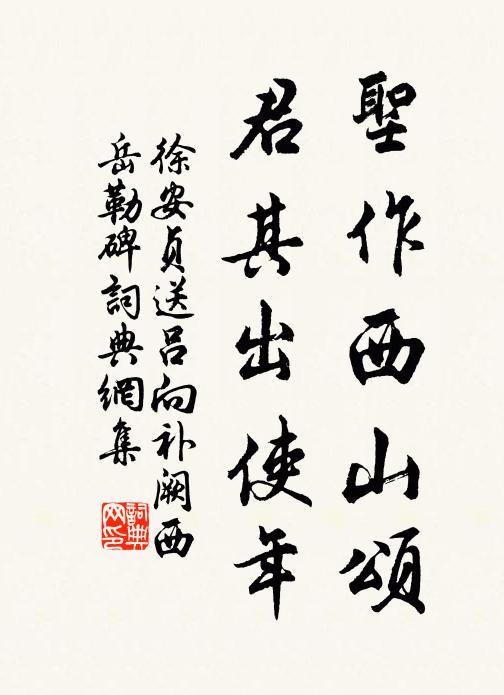 聖作西山頌
君其出使年
徐安貞送呂向补阙西
岳勒碑詞典網集
詞典
网印